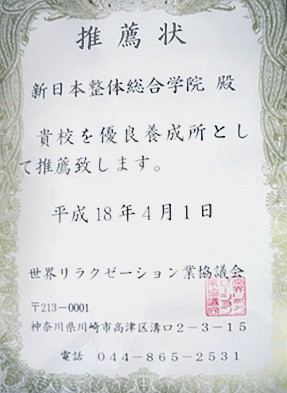 推薦状
新日本整体総合学院 殿
貴校を優良養成所とし
て推薦致します。
平成18年4月1日
世界リラクゼーション業協議会
〒213-0001
神奈川県川崎市高津区溝口2-3-15
電話 044-865-2531